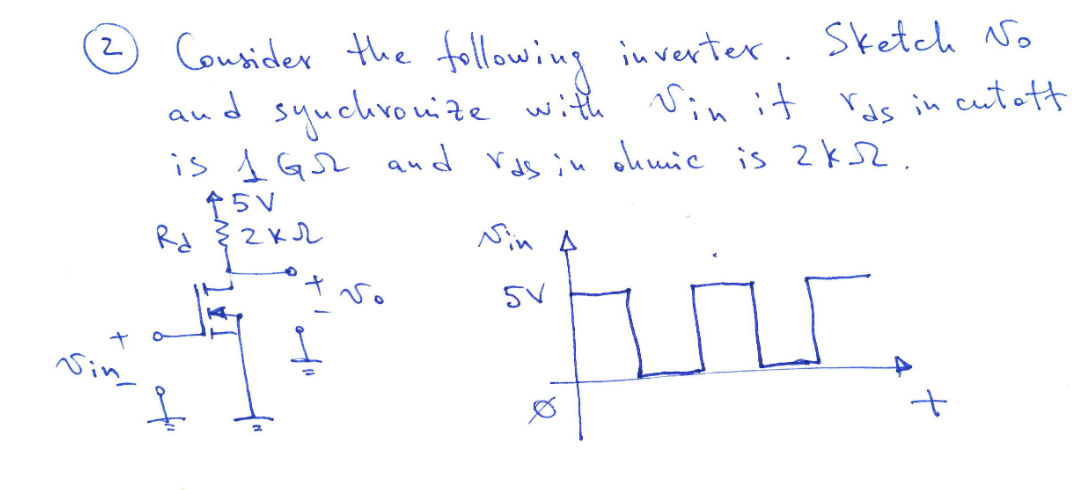 ② Consider the following inverter. Sketch vo
and synchronize with vin if rds in cutoff
is 1 GΩ and rds in ohmic is 2kΩ.
5V
Rd 2KΩ
+ vo
-
+
vin
-
vin
5V
Ø
t